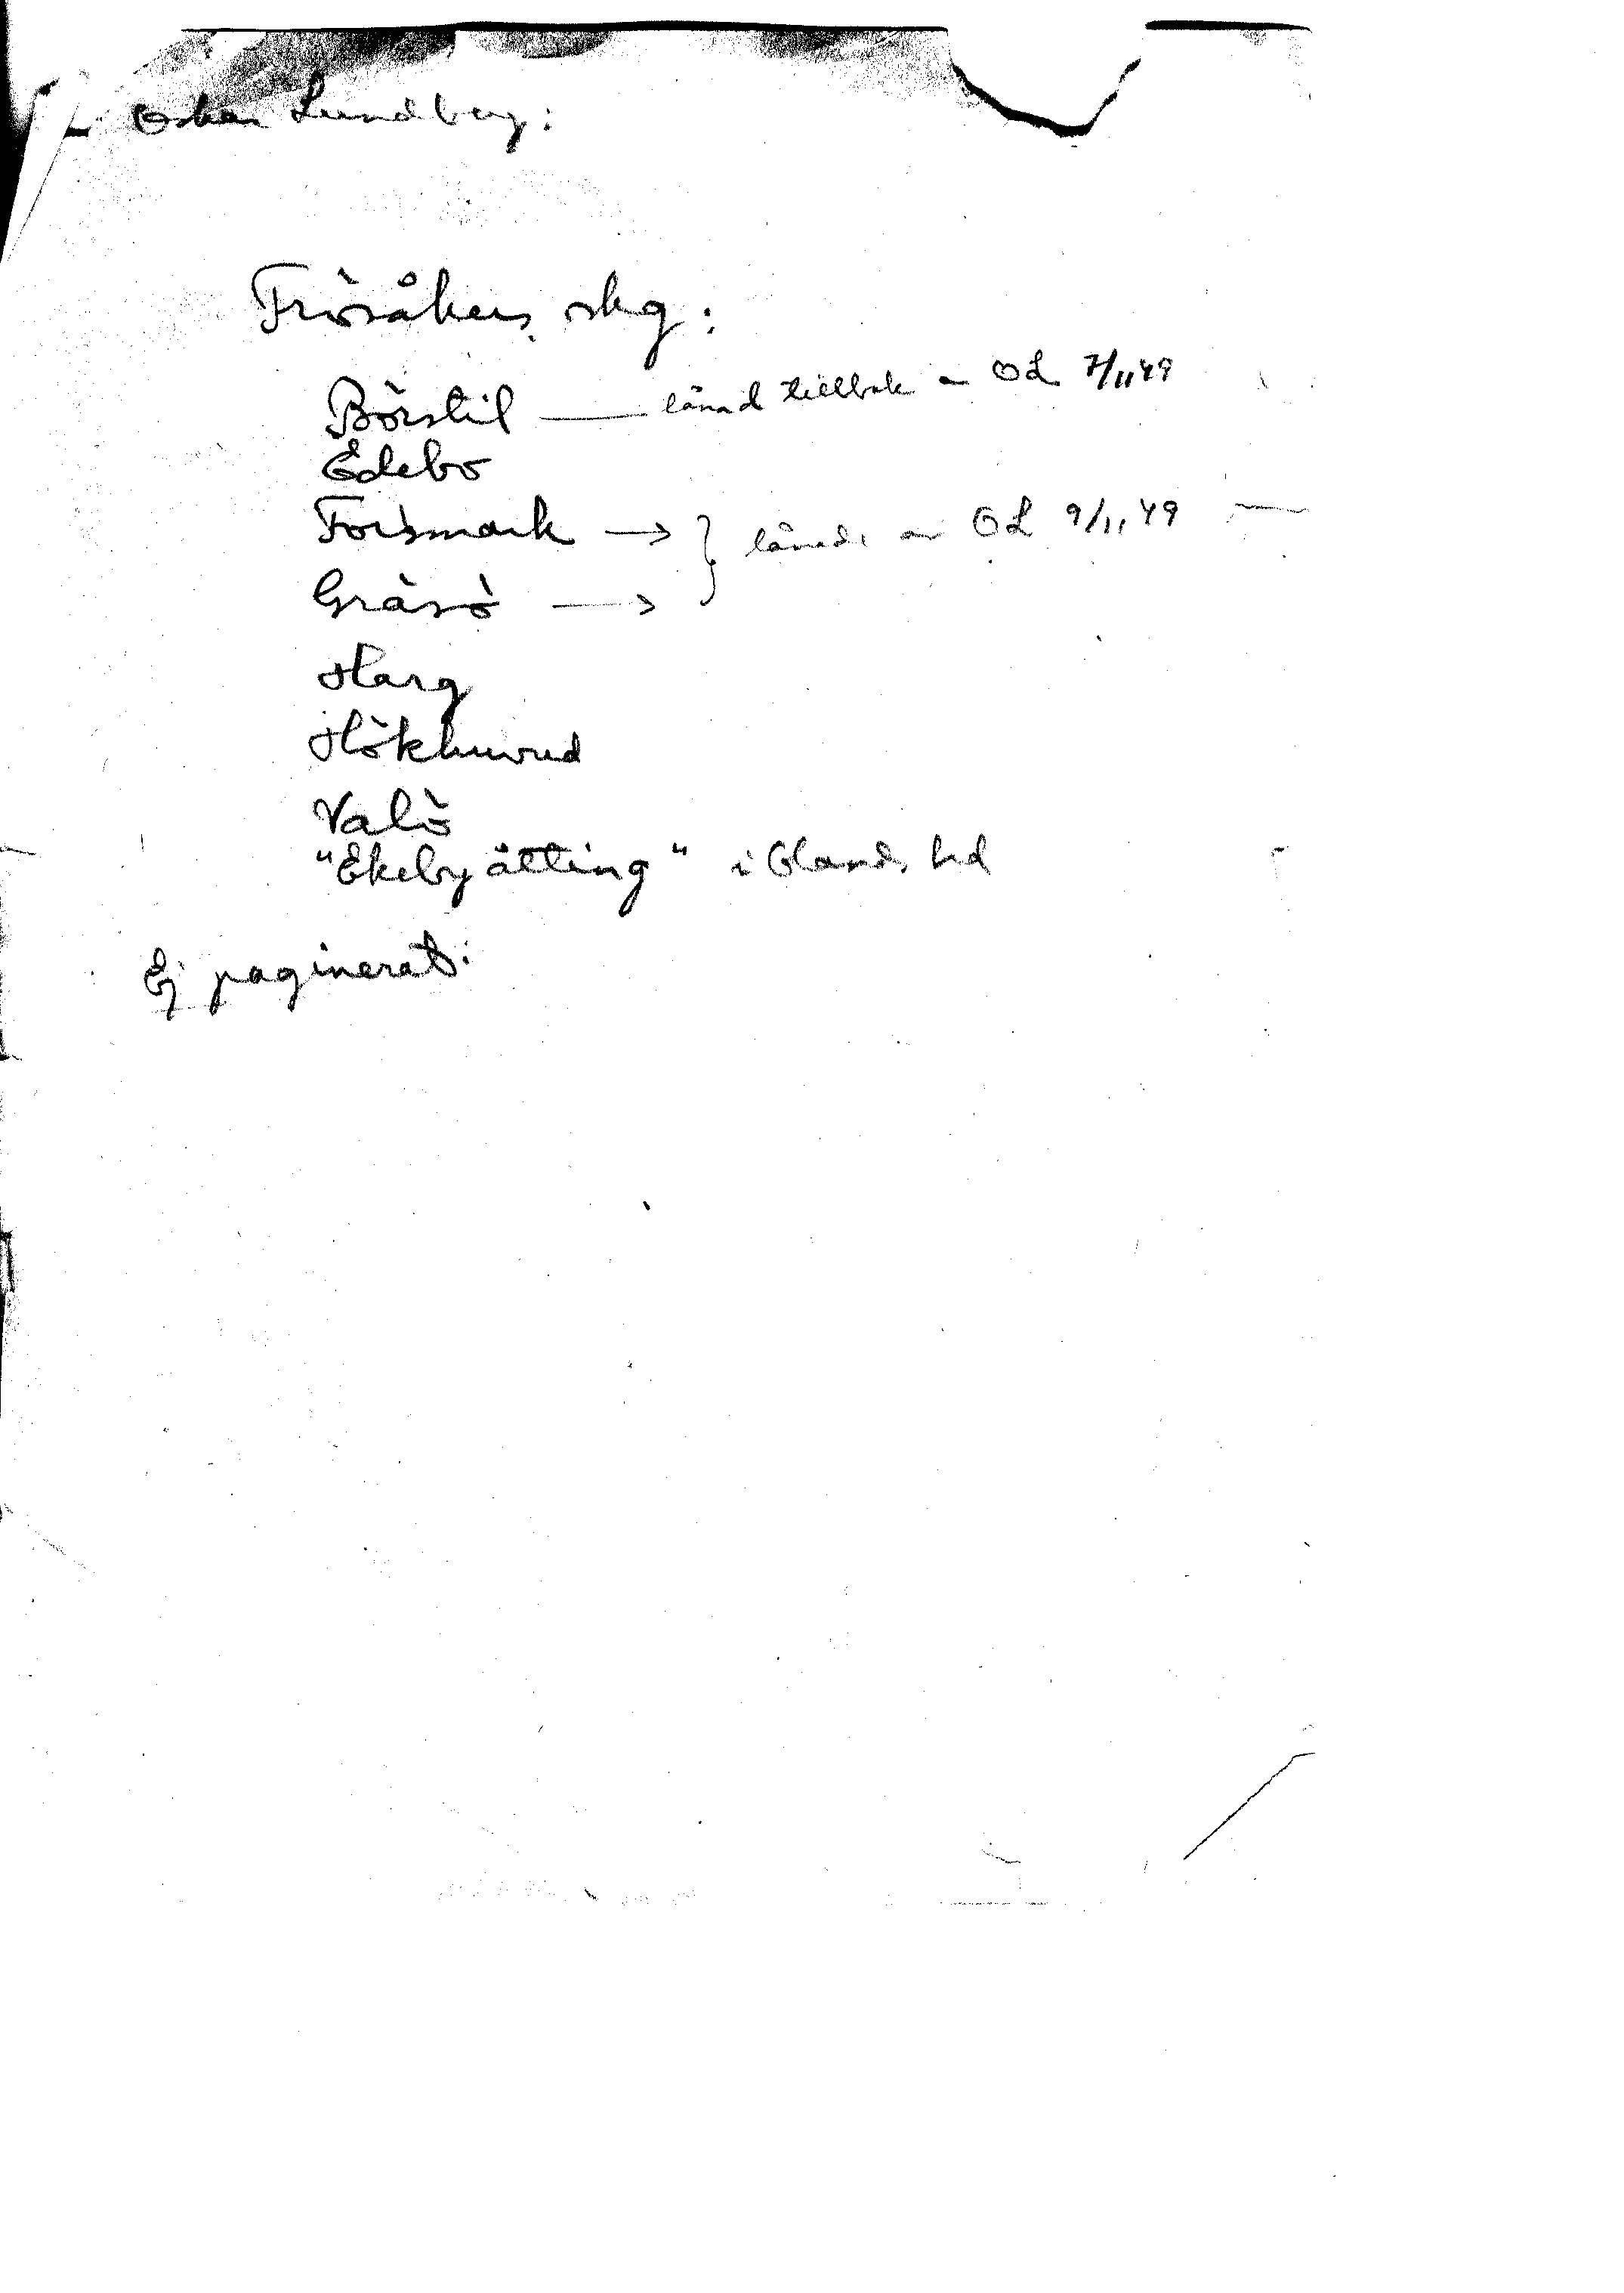 Oskar Lundberg:
Frösåkers skg:
Börstil — lånad tillbak av OL 7/11 49
Edebo
Forsmark → } lånade av OL 9/11 49
Gräsö →
Harg
Hökhuvud
Valö
"Ekeby åtting" i Olands hd
Ej paginerat: